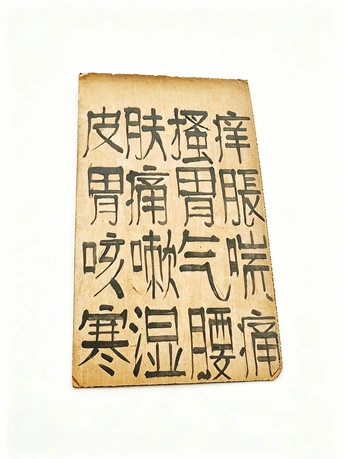 皮肤搔痒
胃痛胃胀
咳嗽气喘
寒湿腰痛